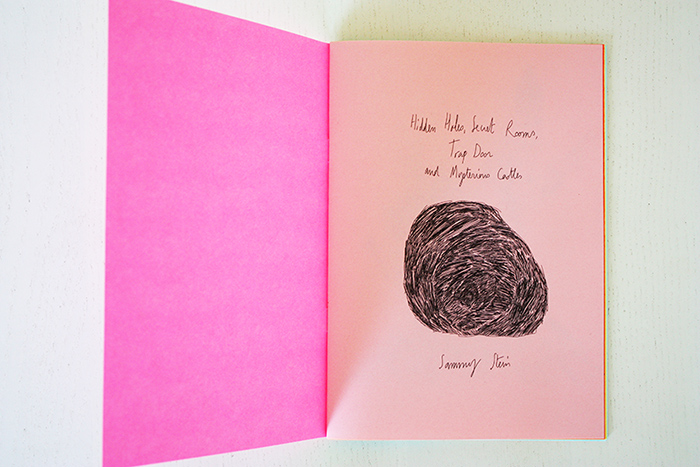 Hidden Holes, Secret Rooms,
Trap Door
and Mysterious Castles
Sammy Stein